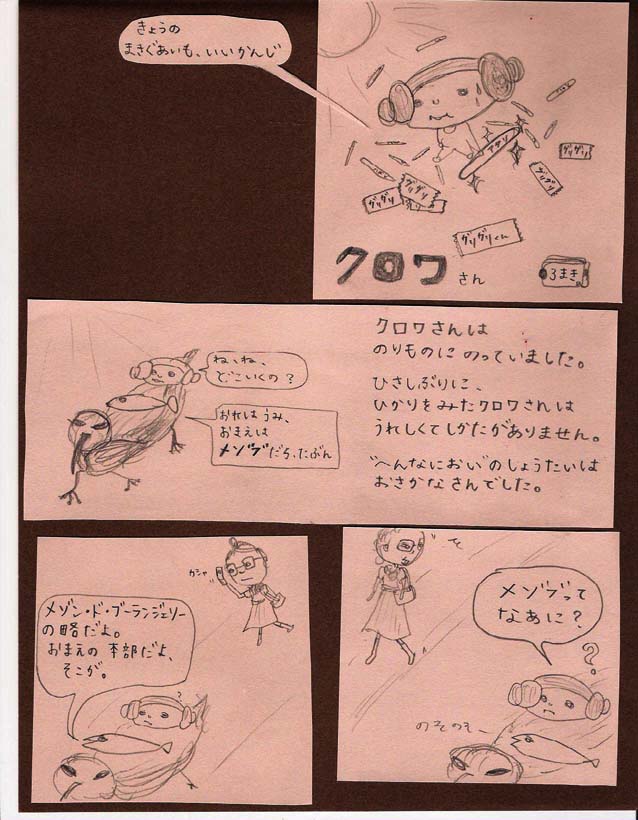 きょうの
まきぐあいも、いいかんじ
アタリ
グリグリ
グリグリ
グリグリ
グリグリ
グリグリくん
クロワさん
3まき
ね、ね、
どこいくの?
おれはうみ、
おまえは
メゾブだろ、たぶん
クロワさんは
のりものに のっていました。
ひさしぶりに、
ひかりをみたクロワさんは
うれしくてしかたがありません。
"へんなにおい"のしょうたいは
おさかなさんでした。
メゾブって
なあに?
?
のそのそ〜
カシャ
メゾン・ド・ブーランジェリー
の略だよ。
おまえの 本部だよ、
そこが。
?